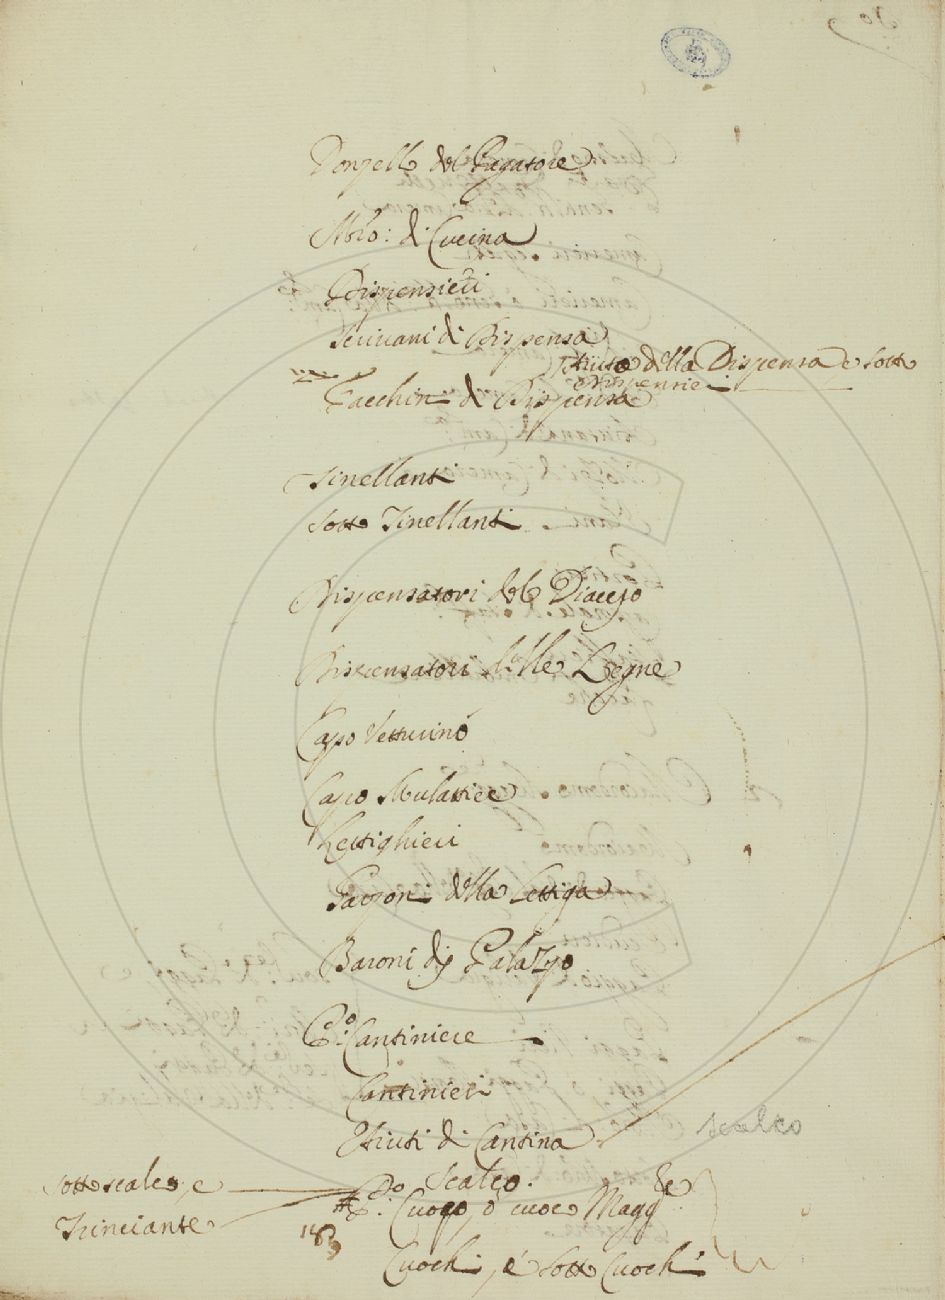 30
Donzello del Pagatore
Mro: di Cucina
Dispensieri
Scrivani di Dispensa
Aiuto della Dispensa e sotto
dispensie
Facchini di Dispensa
Tinellanti
Sotto Tinellanti
Dispensatori del Diaccio
Dispensatori delle Legne
Capo Vetturino
Capo Mulattiere
Lettighieri
Garzoni della Lettiga
Baroni di Palazzo
Po: Cantiniere
Cantinieri
Aiuti di Cantina
scalco
Scalco.
sotto scalco, e
Trinciante
Po: Cuoco, o cuoco Magg:re
Cuochi, e sotto Cuochi